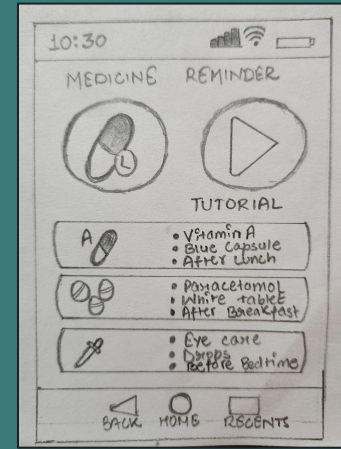 10:30
MEDICINE REMINDER
TUTORIAL
A
• Vitamin A
• Blue Capsule
• After Lunch
• Paracetamol
• White tablet
• After Breakfast
• Eye care
• Drops
• Before Bedtime
BACK HOME RECENTS